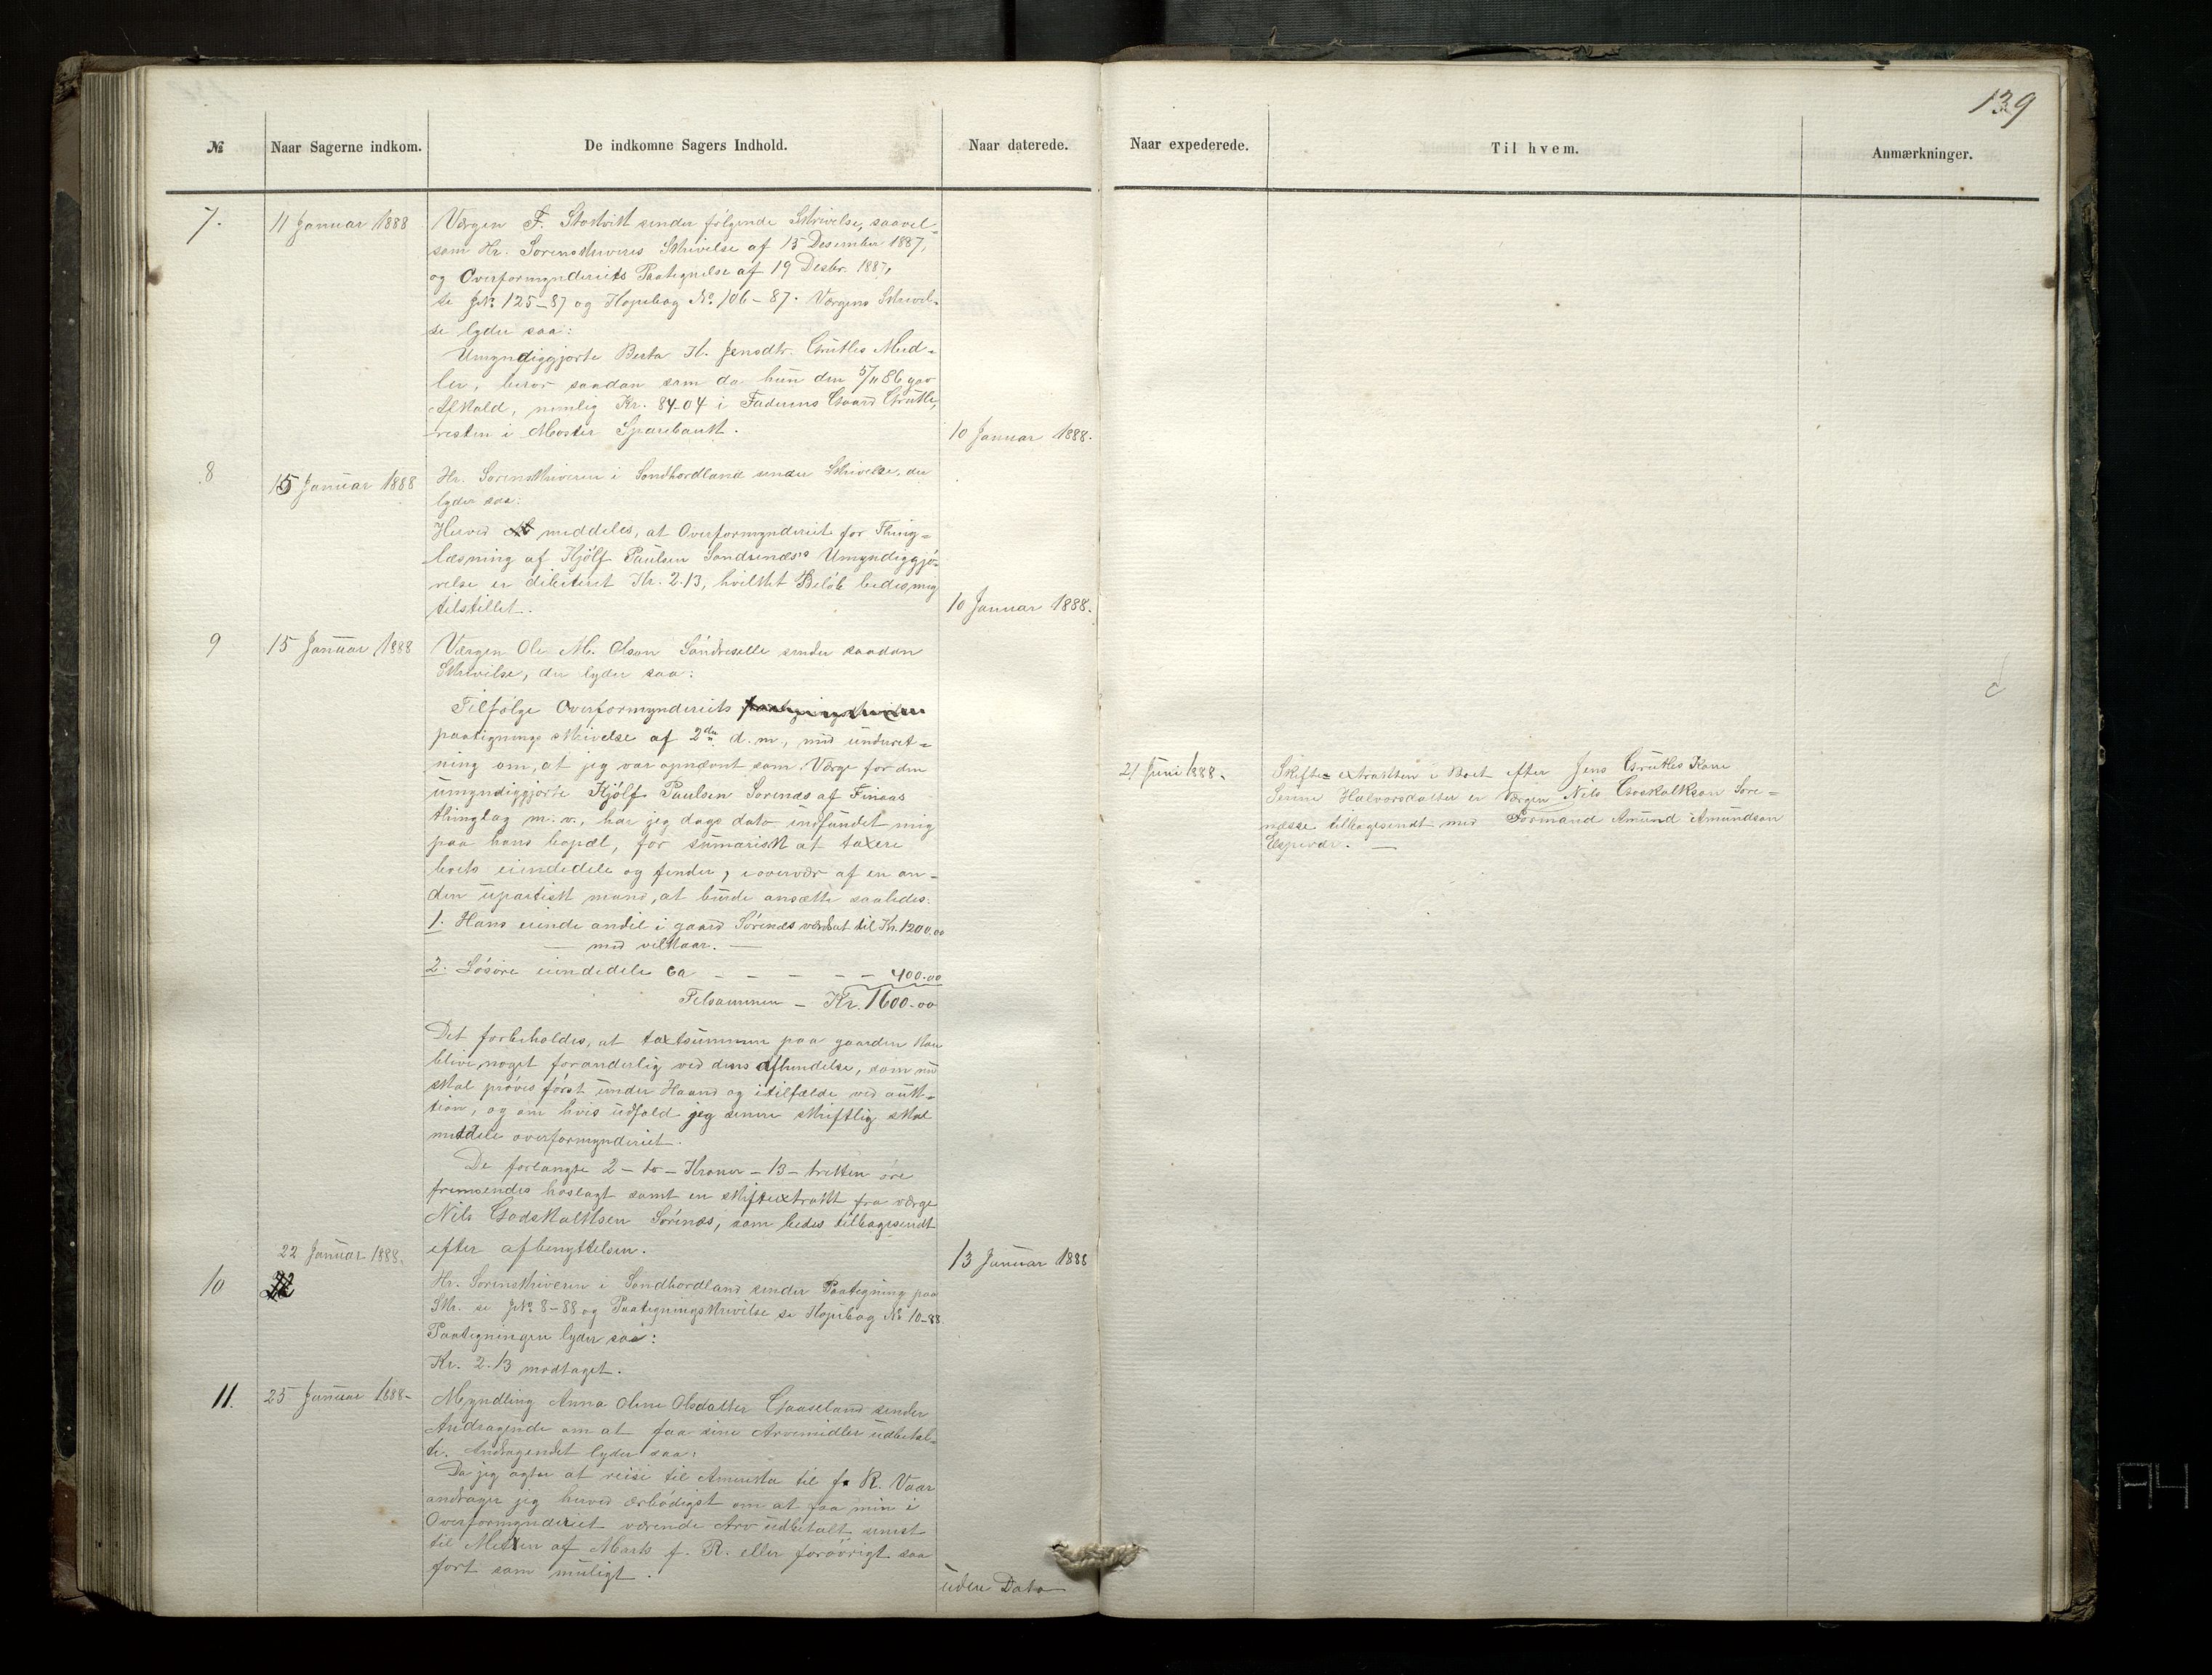 139
№ Naar Sagerne indkom. De indkomne Sagers Indhold. Naar daterede. Naar expederede. Til hvem. Anmærkninger.
7. 11 Januar 1888 Værgen F. Stokvik sender følgende Skrivelse, saavel-
som Hr. Sorenskriveres Skrivelse af 15 Desember 1887,
og Overformynderiets Paategnelse af 19 Desbr. 1887,
se J№ 125-87 og Kopibog № 106-87. Værgens Skrivel-
se lyder saa:
Umyndiggjorte Berta K. Jensdtr. Grutles Mid-
ler, beror saadan som da hun den 5/11 86 gav
Afkald, nemlig Kr. 84-04 i Faderens Gaard Grutle,
resten i Moster Sparebank. 10 Januar 1888.
8 15 Januar 1888 Hr. Sorenskriveren i Søndhordland sender Skrivelse, der
lyder saa:
Herved meddeles, at Overformynderiet for Thing-
læsning af Kjølf Paulsen Søndrenæs's Umyndiggjø-
relse er debiteret Kr. 2.13, hvilket Beløb bedes mig
tilstillet. 10 Januar 1888.
9 15 Januar 1888 Værgen Ole M. Olson Søndreselle sender saadan
Skrivelse, der lyder saa:
Tilfølge Overformynderiets
paategnings skrivelse af 2den d. m., med underet-
ning om, at jeg var opnævnt som Værge for den
umyndiggjorte Kjølf Paulsen Sørenæs af Finaas
thinglag m. v., har jeg dags dato indfundet mig
paa hans bopæl, for sumarisk at taxere
boets eiendedele og finder, i overvær af en an-
den upartisk mand, at burde ansætte saaledes:
1. Hans eiende andel i gaard Sørenæs værdsat til Kr. 1200.00
— med vilkaar. —
2. Løsøre eiendedele ca - - - - - 400.00
Tilsammen - Kr. 1600.00
Det forbeholdes, at taxtsummen paa gaarden kan
blive noget foranderlig ved dens afhendelse, som nu
skal prøves først under Haand og i tilfælde ved auk-
tion, og om hvis udfald jeg senere skriftlig skal
meddele overformynderiet.
De forlangte 2 - to - Kroner - 13 - tretten øre
fremsendes hoslagt samt en skifteextrakt fra værge
Nils Godskalksen Sørenæs, som bedes tilbagesendt
efter afbenyttelsen. 13 Januar 1888
21 Juni 1888. Skifte=extrakten i Boet efter Jens Grutles Kone
Senne Halvorsdatter er Værgen Nils Goskalkson Søre=
næsse tilbagesendt med Formand Amund Amundson
Espevær. —
22 Januar 1888.
10 Hr. Sorenskriveren i Søndhordland sender Paategning paa
Skr. se J№ 8-88 og Paategningsskrivelse se Kopibog № 10-88.
Paategningen lyder saa:
Kr. 2.13 modtaget.
11. 25 Januar 1888- Myndling Anna Oline Olsdatter Gaaseland sender
Andragende om at faa sine Arvemidler udbetal-
te. Andragendet lyder saa:
Da jeg agter at reise til Amerika til f. R. Vaar
andrager jeg herved ærbødigst om at faa min i
Overformynderiet værende Arv udbetalt senest
til Midten af Marts f. R. eller forøvrigt saa
fort som muligt. uden Dato